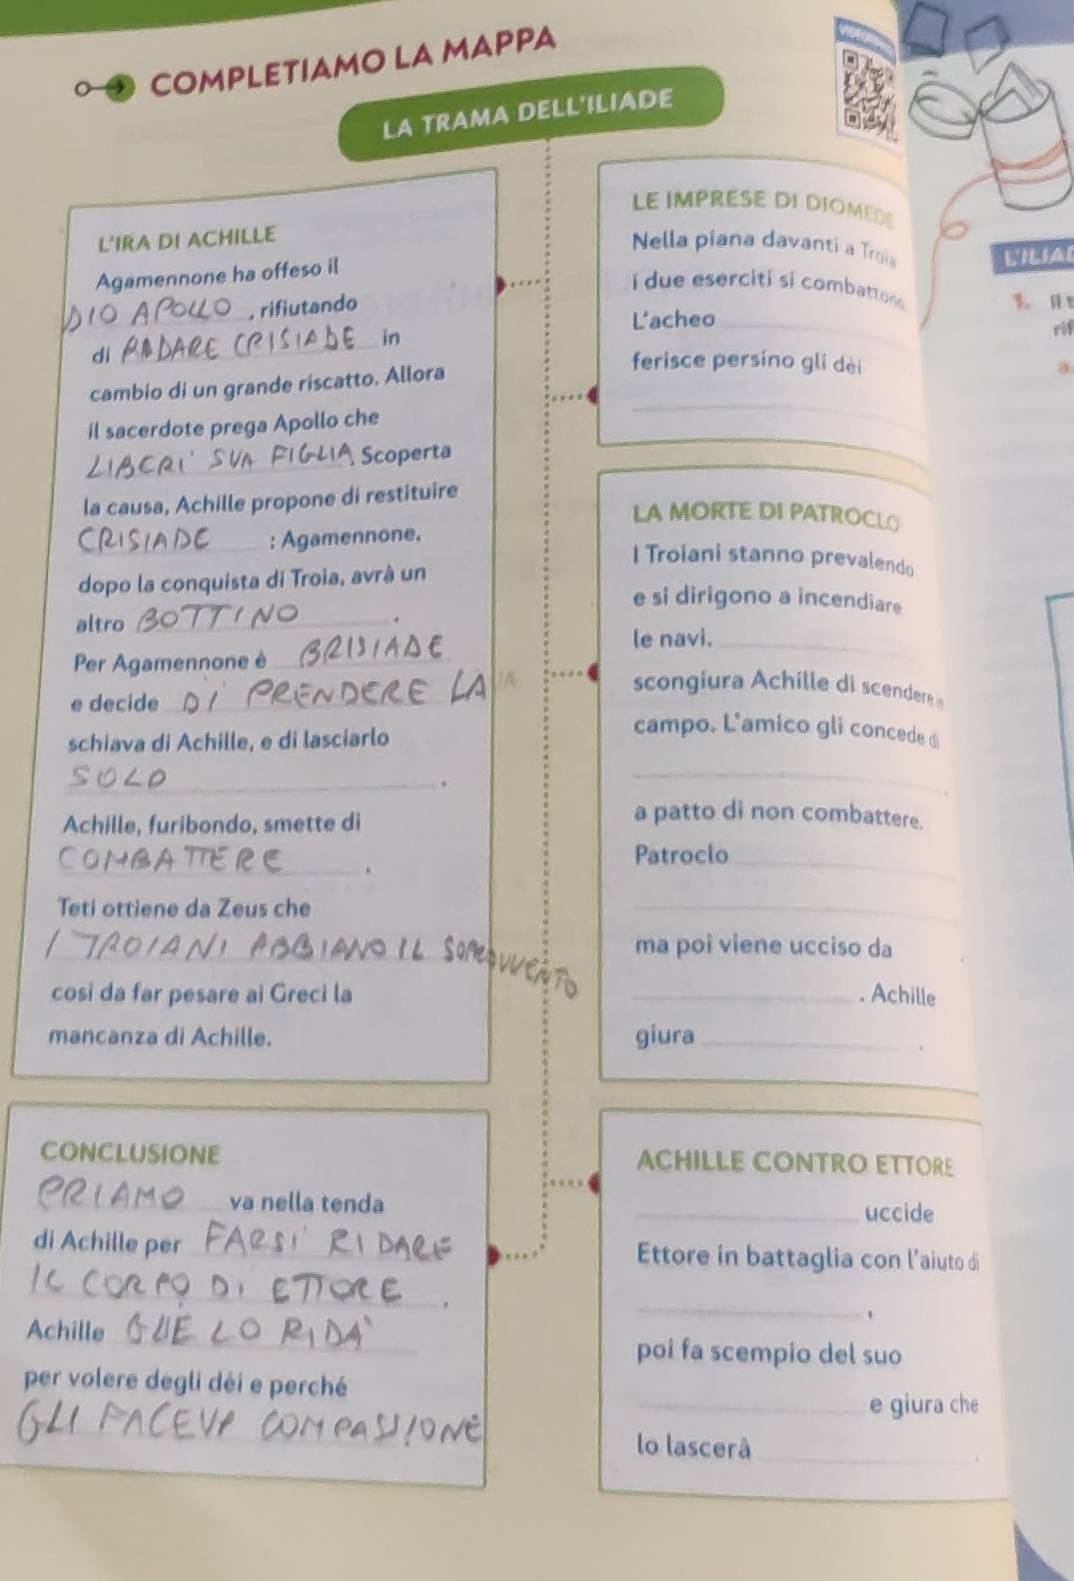 COMPLETIAMO LA MAPPA
LA TRAMA DELL'ILIADE
L'IRA DI ACHILLE
Agamennone ha offeso il
DIO APOLLO, rifiutando
di RADARE CRISIADE in
cambio di un grande riscatto. Allora
il sacerdote prega Apollo che
LIBERI SUA FIGLIA Scoperta
la causa, Achille propone di restituire
CRISIADE : Agamennone,
dopo la conquista di Troia, avrà un
altro BOTTINO.
Per Agamennone è BRISIADE
e decide DI PRENDERE LA
schiava di Achille, e di lasciarlo
SOLO.
Achille, furibondo, smette di
COMBATTERE.
Teti ottiene da Zeus che
I TROIANI ABBIANO IL SOPRAVVENTO
così da far pesare ai Greci la
mancanza di Achille.
CONCLUSIONE
PRIAMO va nella tenda
di Achille per FARSI RIDARE
IL CORPO DI ETTORE.
Achille GLIE LO RIDA'
per volere degli dèi e perché
GLI FACEVA COMPASSIONE
LE IMPRESE DI DIOMEDE
Nella piana davanti a Troia
i due eserciti si combattono.
L'acheo
ferisce persino gli dèi
LA MORTE DI PATROCLO
I Troiani stanno prevalendo
e si dirigono a incendiare
le navi.
scongiura Achille di scendere in
campo. L'amico gli concede di
.
a patto di non combattere.
Patroclo
ma poi viene ucciso da
. Achille
giura .
ACHILLE CONTRO ETTORE
uccide
Ettore in battaglia con l'aiuto di
,
poi fa scempio del suo
e giura che
lo lascerà .
L'ILIAD
1. Il t
rif
a.